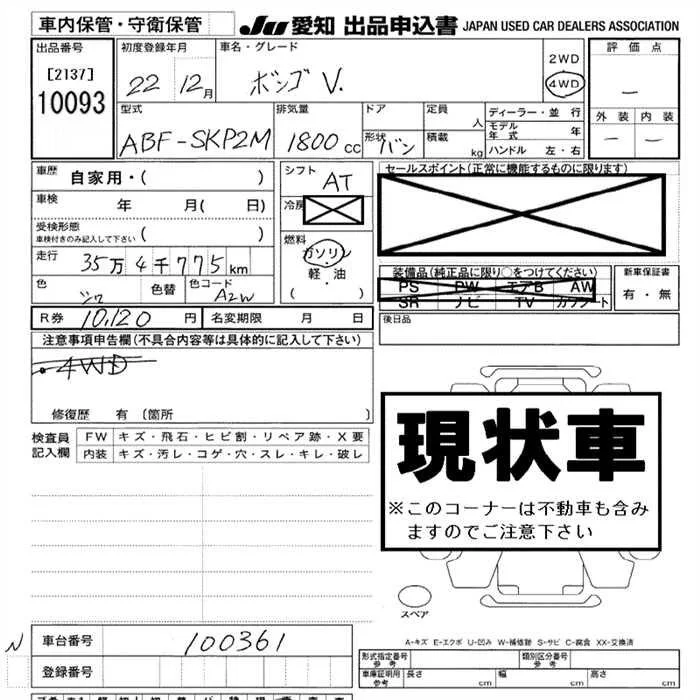 車内保管・守衛保管 JU 愛知 出品申込書 JAPAN USED CAR DEALERS ASSOCIATION
出品番号 初度登録年月 車名・グレード 評価点
[2137] 22 12月 ボンゴ V. 2WD
10093 4WD －
型式 排気量 ドア 定員 人 ディーラー・並行 外装 内装
ABF-SKP2M 1800cc 形状 バン 積載 kg モデル年式 年 － －
ハンドル 左・右
車歴 自家用・( ) シフト AT セールスポイント(正常に機能するものに限ります)
車検 年 月( 日) 冷房
受検形態
車検付きのみ記入して下さい ( ) 燃料
走行 35万4千775km ガソリン
軽・油
( )
装備品(純正品に限り○をつけてください) 新車保証書
PS PW エアB AW 有・無
SR ナビ TV カワシート
色 シロ 色替 色コード A2W
R券 10,120円 名変期限 月 日 後日品
注意事項申告欄(不具合内容等は具体的に記入して下さい)
4WD
修復歴 有 [箇所 ]
現状車
※このコーナーは不動車も含み
ますのでご注意下さい
検査員 FW キズ・飛石・ヒビ割・リペア跡・X要
記入欄 内装 キズ・汚レ・コゲ・穴・スレ・キレ・破レ
スペア
A-キズ E-エクボ U-凹み W-補修跡 S-サビ C-腐食 XX-交換済
N 車台番号 100361
登録番号
形式指定番号 参考 類別区分番号 参考
車庫証明用 参考 長さ cm 幅 cm 高さ cm